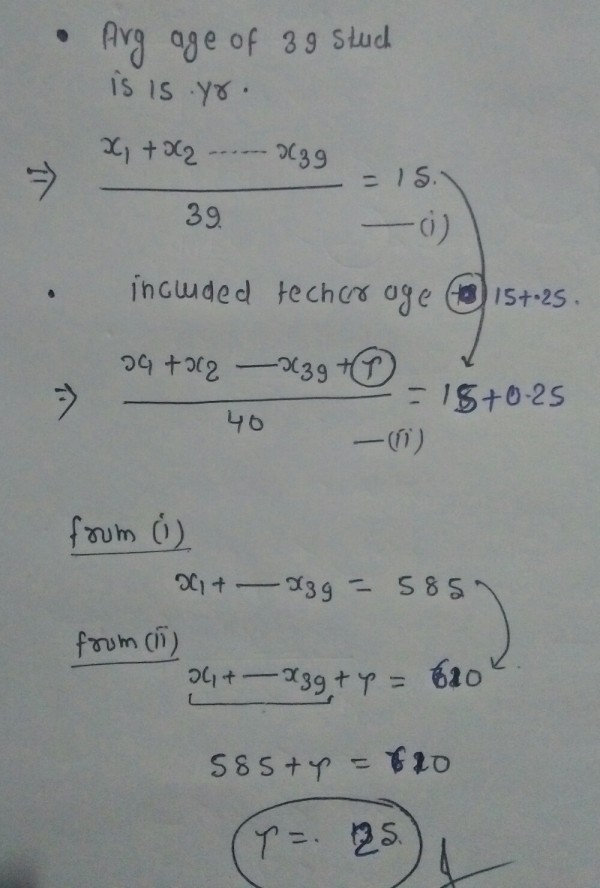 • Avg age of 39 stud
is 15 yr.
⇒ x₁ + x₂ ...... x₃₉ / 39 = 15. —(i)
• included techer age 15+.25.
⇒ x₁ + x₂ — x₃₉ + T / 40 = 15+0.25 —(ii)
from (i)
x₁ + — x₃₉ = 585
from (ii)
x₁ + — x₃₉ + T = 610
585 + T = 610
T = 25.